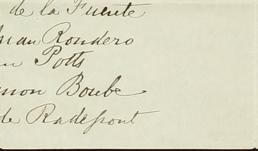 de la Fuente
Rondero
Potts
Boube
de Radepont